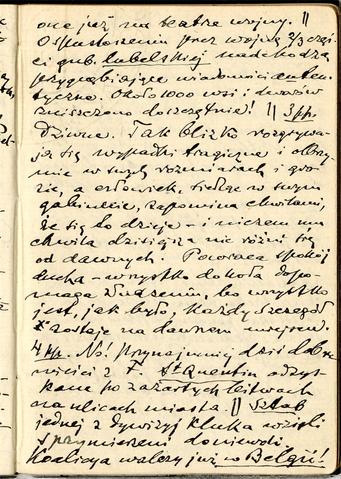 one już na teatre wojny. ||
O spustoszeniu przez wojnę 2/3 częś-
ci gub. lubelskiej nadchodzą
przygnębiające wiadomości auten-
tyczne. Około 1000 wsi i dworów
zniszczono doszczętnie! || 3 pp.
Dziwne. Tak blizko rozgrywa-
ją się wypadki tragiczne i olbrzy-
mie w swych rozmiarach i gro-
zie, a człowiek, siedząc w swym
gabinecie, zapomina chwilami,
że się to dzieje - i niczem mu
chwila dzisiejsza nie różni się
od dawnych. Powraca spokój
ducha - wszystko dokoła dopo-
maga złudzeniu, bo wszystko
jest, jak było, każdy szczegół
zostaje na dawnem miejscu.
4 pp. No! Przynajmniej dziś dobre
wieści z F. St Quentin odzys-
kane po zażartych bitwach
na ulicach miasta. || Sztab
jednej z dywizyj Kluka wzięli
sprzymierzeni do niewoli.
Koalicya walczy już w Belgii!